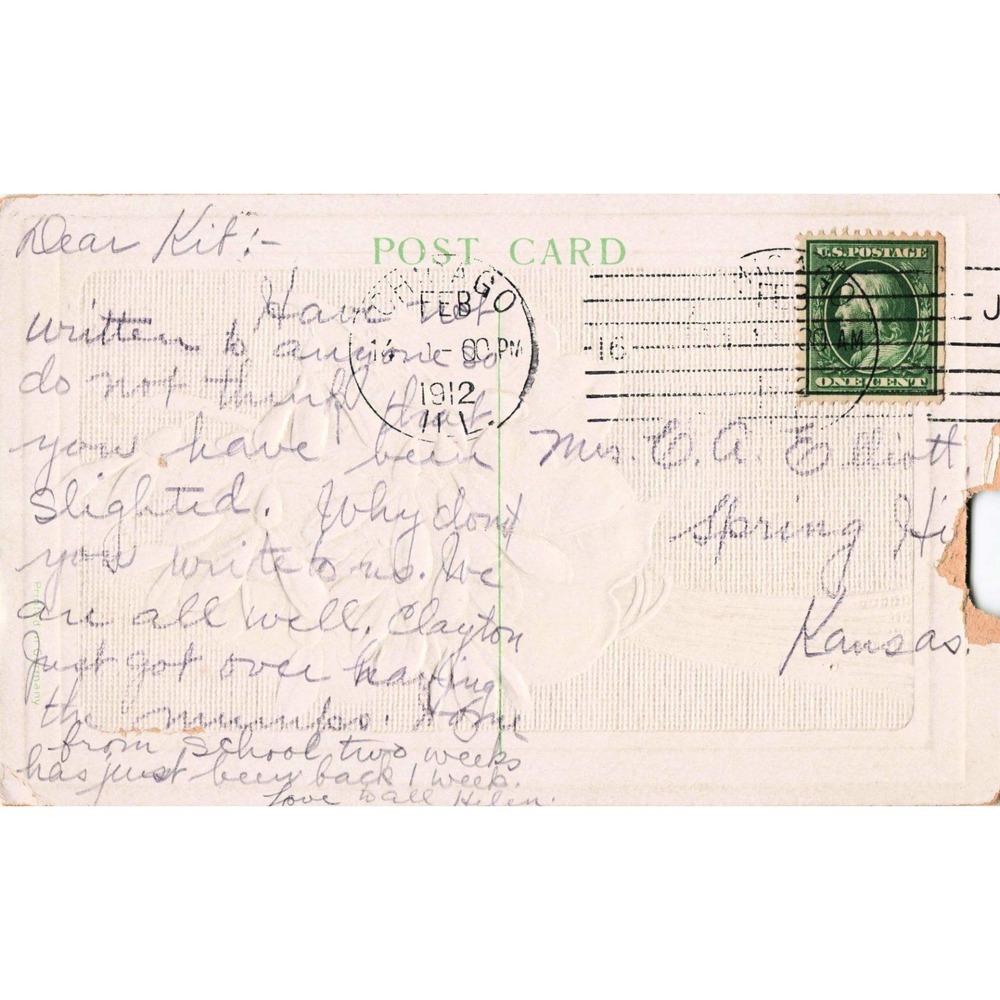 POST CARD
Dear Kit:-
Have not
written to anyone so
do not think that
you have been
slighted. Why dont
you write to us. We
are all well. Clayton
just got over having
the mumps. Home
from school two weeks
has just been back 1 week.
Love to all Helen.
CHICAGO
FEB
1 00 PM
1912
ILL
16
FEB
30 AM
J
U.S. POSTAGE
ONE CENT
Mrs. C. A. Elliott,
Spring Hi
Kansas.
Germany